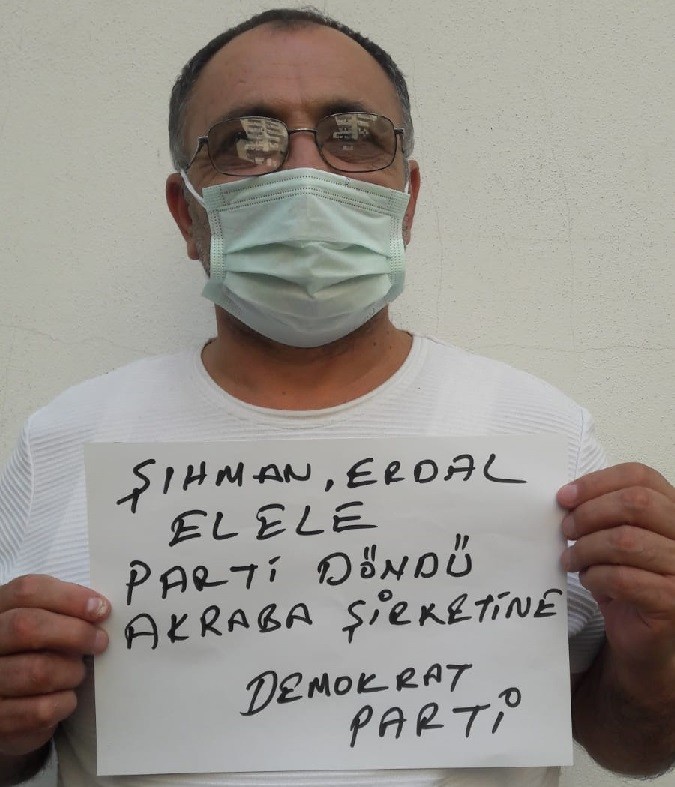 ŞIHMAN, ERDAL
EL ELE
PARTİ DÖNDÜ
AKRABA ŞİRKETİNE
DEMOKRAT
PARTİ